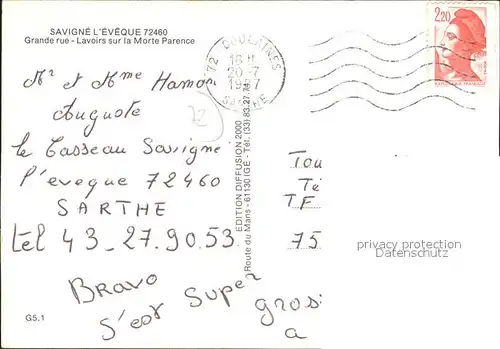 SAVIGNÉ L'ÉVÊQUE 72460
Grande rue - Lavoirs sur la Morte Parence
72 COULAINES
18 H
20-7
1987
SARTHE
2,20
Mr et Mme Hamon
Auguste
le Tasseau Savigne
l'eveque 72460
SARTHE
tel 43_27.90.53
72
EDITION DIFFUSION 2000
Route du Mans - 61130 IGÉ - Tél. (33) 83.27.74
TOU
TÉ
TF
75
privacy protection
Datenschutz
BRAVO
S'est Super
gros
a
G5.1